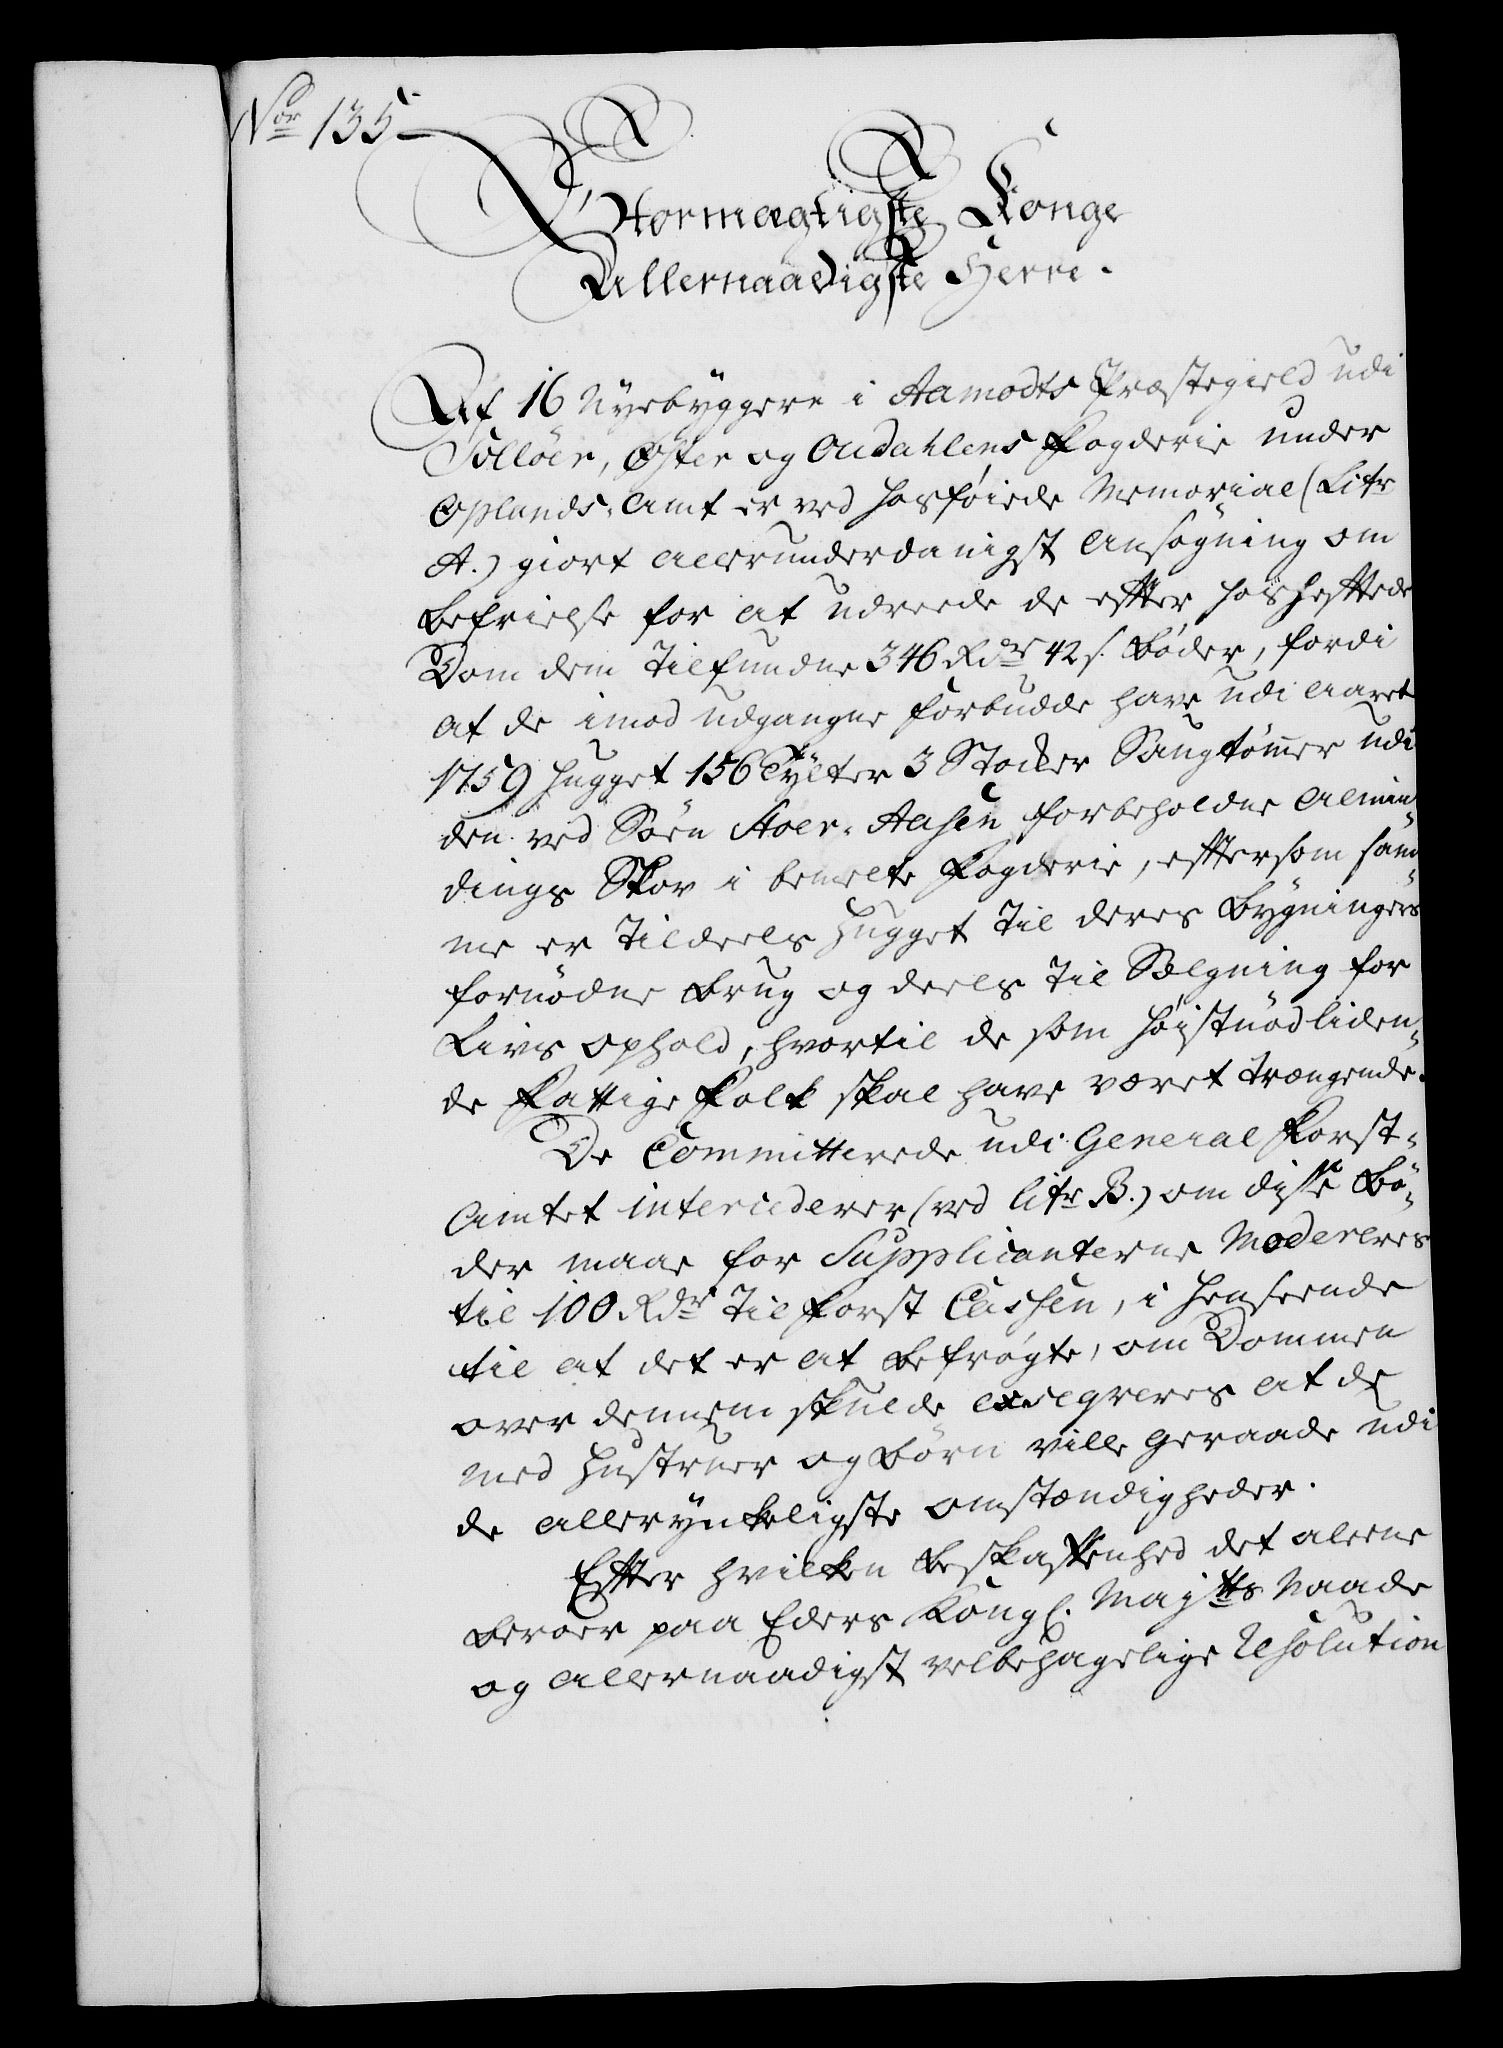 Nor 135
Stormægtigste Konge
Allernaadigste Herre.
Af 16 Nyebyggere i Aamodts Præstegield udi
Solløer, Øster og Oudahlens Fogderie under
Oplands-Amt er ved hosføiede Memorial (Litr
A.) giort allerunderdanigst Ansøgning om
Befrielse for at udreede de efter hoshæftede
Dom dem tilfundne 346 Rdr 42 s. Bøder, fordi
at de imod udgangne Forbudde have udi Aaret
1759 hugget 156 Tylter 3 Stocker Saugtømer udi
den ved Søen Stoer-Aasen forbeholdne Almin-
dings Skov i bemelte Fogderie, eftersom sam-
me er tildeels hugget til deres Bygningers
fornødne Brug og deels til Sælgning for
Livs ophold, hvortil de som høistnødliden-
de Fattige Folk skal have været trængende.
De Committerede udi General Forst-
Amtet intercederer (ved litr B.) om disse Bø-
der maae for Supplicanterne Modereres
til 100 Rdr til Forst Cassen, i henseende
til at det er at befrøgte, om Dommen
over dennem skulde exseqveres at de
med Hustruer og Børn ville geraade udi
de allerynkeligste omstændigheder.
Efter hvilken Beskaffenhed det aleene
beroer paa Eders Kongl. Mayts Naade
og allernaadigst velbehagelige Resolution